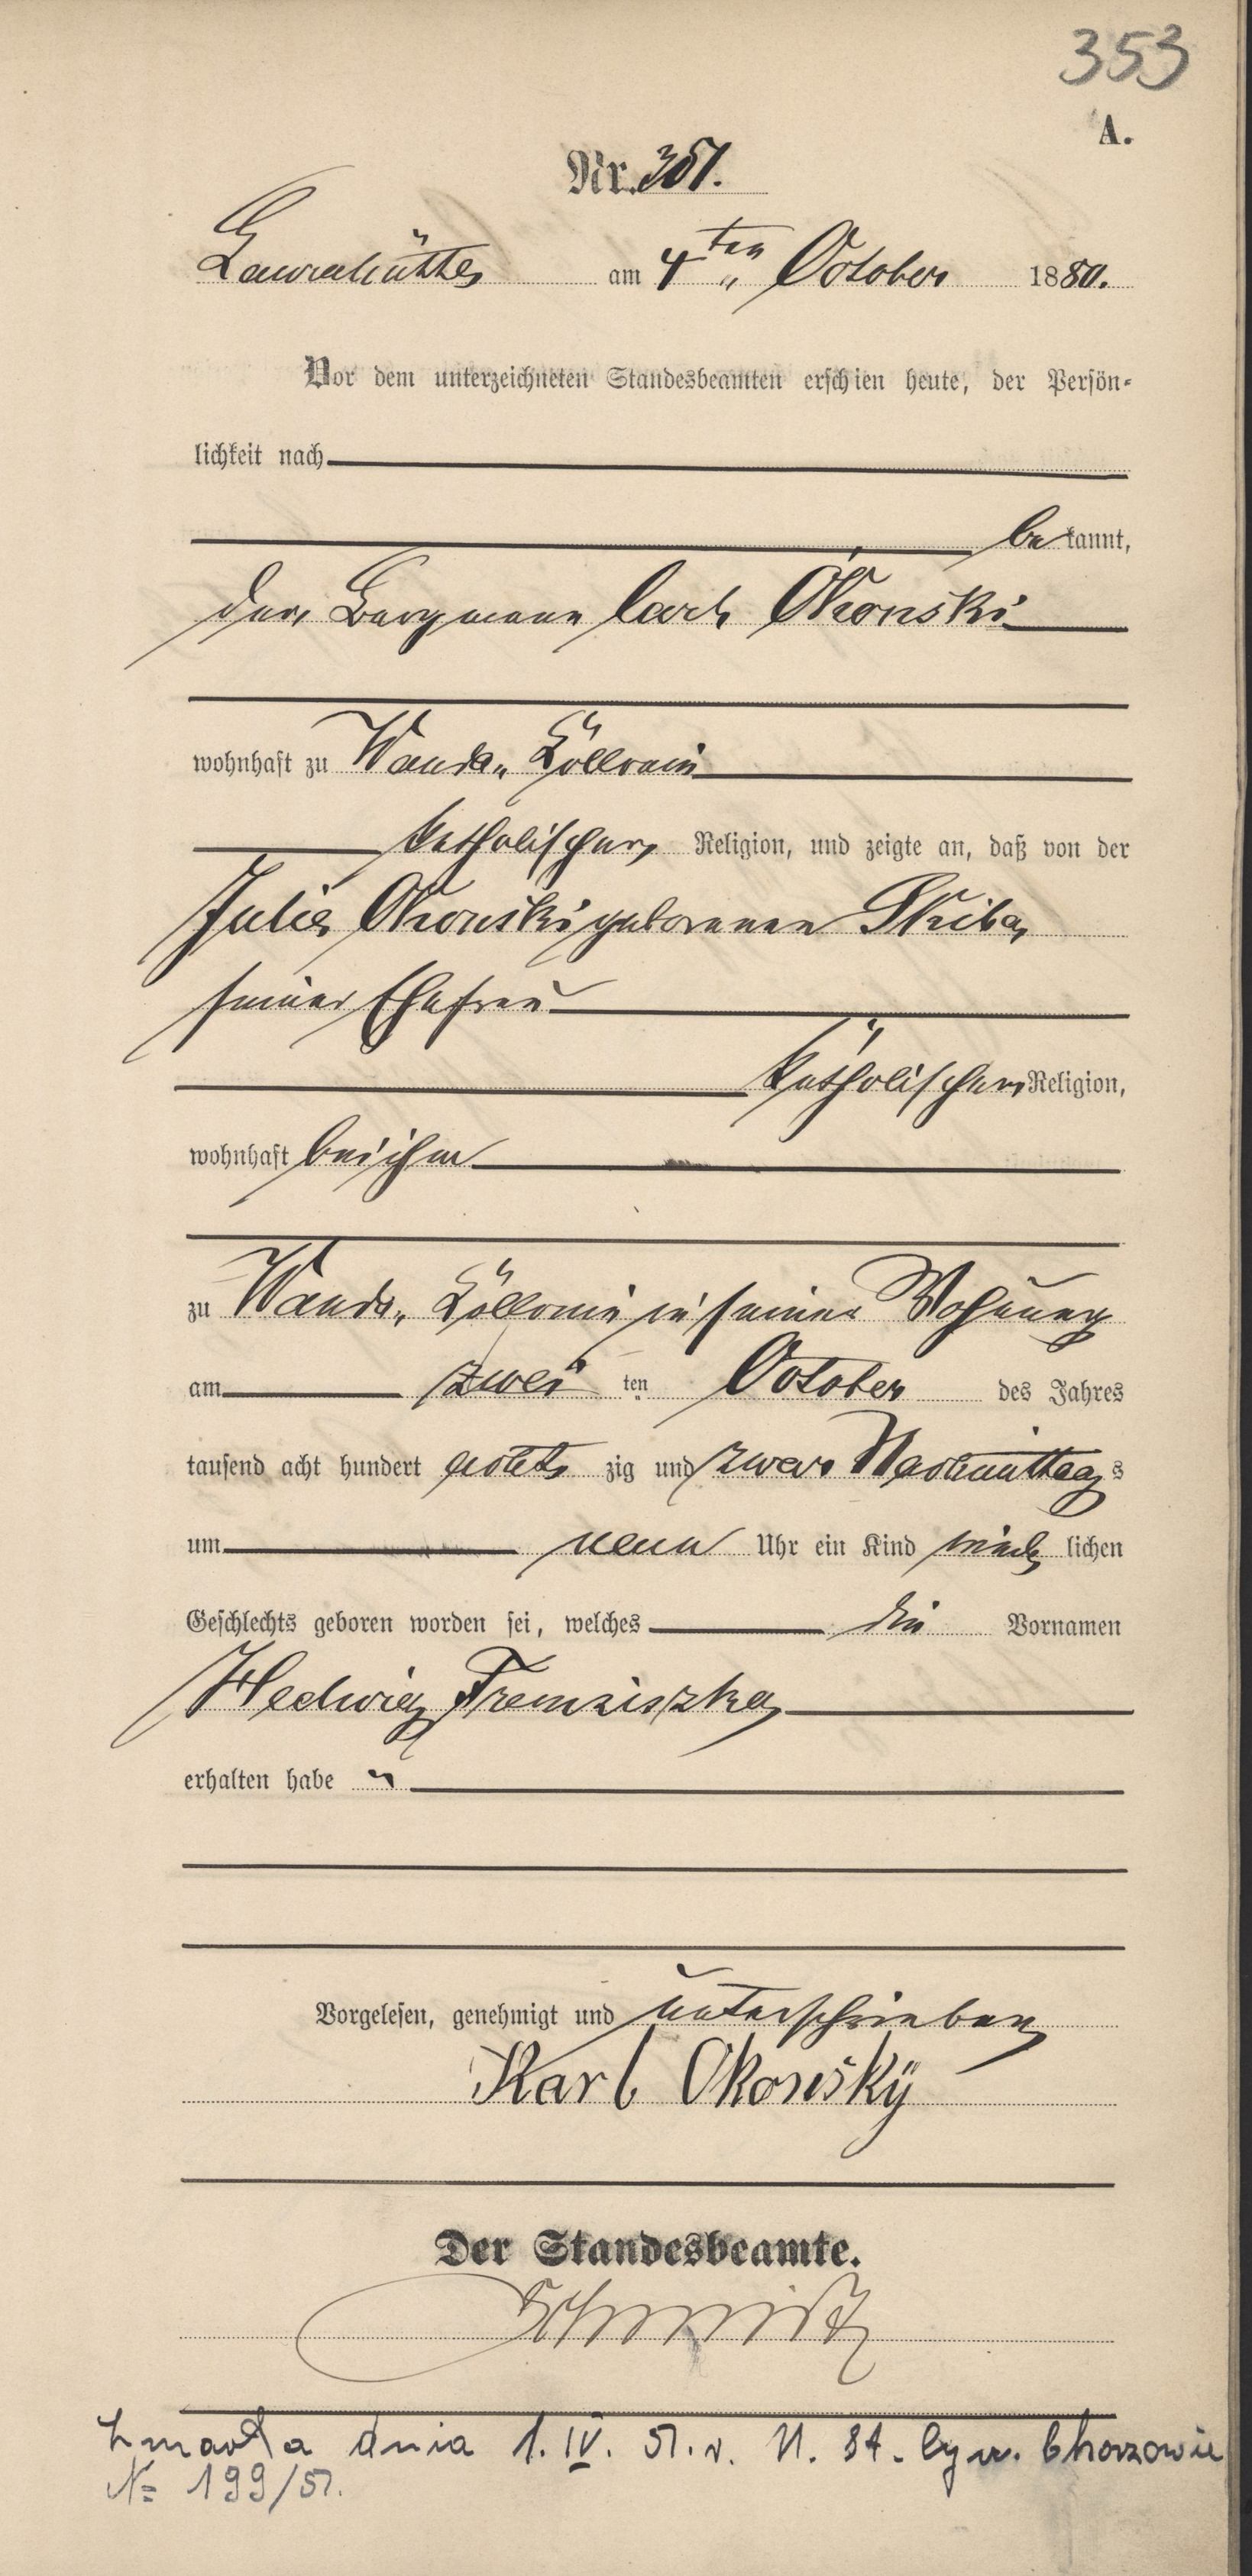 353
A.
Nr. 351.
Laurahütte am 4ten October 1880.
Vor dem unterzeichneten Standesbeamten erschien heute, der Persön-
lichkeit nach
bekannt,
der Bergmann Carl Okonski
wohnhaft zu Wanda-Collonie
katholischer Religion, und zeigte an, daß von der
Julia Okonski geborenen Skiba,
seiner Ehefrau
katholischer Religion,
wohnhaft bei ihm
zu Wanda-Collonie in seiner Wohnung
am zwei ten October des Jahres
tausend acht hundert acht zig und Nachmittags
um neun Uhr ein Kind weib lichen
Geschlechts geboren worden sei, welches die Vornamen
Hedwig Franziszka
erhalten habe
Vorgelesen, genehmigt und unterschrieben
Karl Okonsky
Der Standesbeamte.
Zmarła dnia 1. IV. 51. r. U. St. Cyw. Chorzowie
№ 199/51.